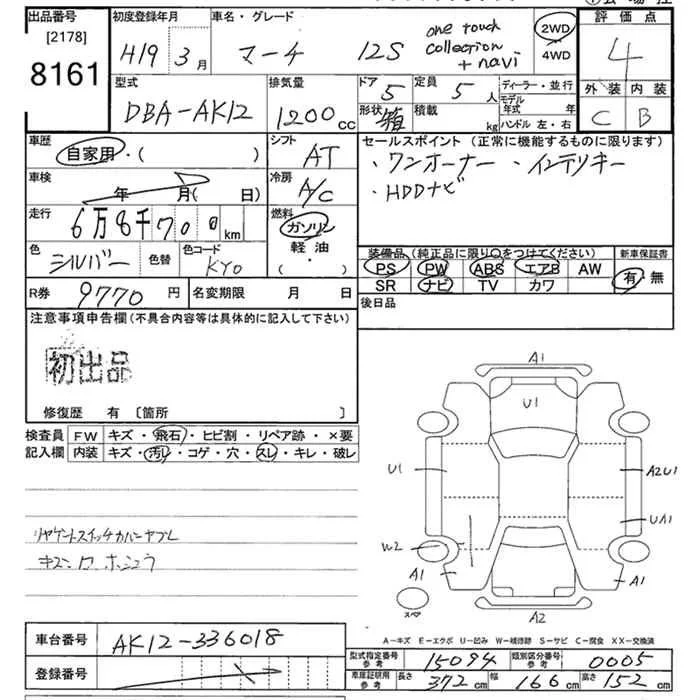 出品番号 初度登録年月 車名・グレード 評価点
[2178]
8161
H19 3月 マーチ 12S one touch collection + navi 2WD 4WD 4
型式 排気量 ドア 定員 ディーラー・並行 外装 内装
DBA-AK12 1200cc 5 5人 モデル年式 年 C B
形状 箱 積載 kg ハンドル 左・右
車歴 シフト セールスポイント(正常に機能するものに限ります)
自家用・( ) AT ・ワンオーナー ・インテリキー
車検 冷房 ・HDDナビ
年 月( 日) A/C
走行 6万8千700km 燃料 ガソリン
軽油
・( )
色 シルバー 色替 色コード KY0
装備品(純正品に限り○をつけてください) 新車保証書
PS PW ABS エアB AW 有・無
SR ナビ TV カワ
R券 9770円 名変期限 月 日 後日品
注意事項申告欄(不具合内容等は具体的に記入して下さい)
初出品
修復歴 有 〔箇所 〕
検査員 FW キズ・飛石・ヒビ割・リペア跡・×要
記入欄 内装 キズ・汚レ・コゲ・穴・スレ・キレ・破レ
A1
U1
U1 A2U1
UA1
W2
A1 A1
スペア A2
リヤゲートスイッチカバーヤブレ
キズ凹ホシュウ
A-キズ E-エクボ U-凹み W-補修跡 S-サビ C-腐食 XX-交換済
車台番号 AK12-336018
登録番号
型式指定番号 参考 15094 類別区分番号 参考 0005
車庫証明用 参考 長さ 372cm 幅 166cm 高さ 152cm